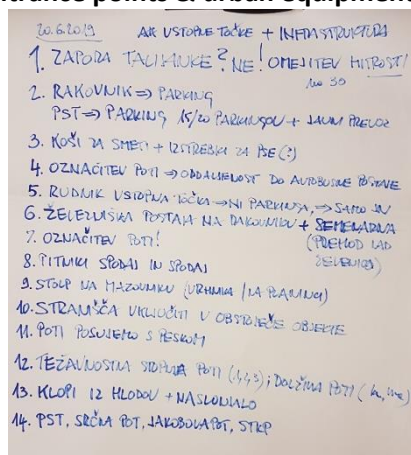 entrance points & urban equipment
20.6.2019 AK VSTOPNE TOČKE + INFRASTRUKTURA
1. ZAPORA TALIJANKE? NE! OMEJITEV HITROSTI
na 30
2. RAKOVNIK => PARKING
PST => PARKING 15/20 PARKINGOV + JAVNI PREVOZ
3. KOŠI ZA SMETI + IZTREBKI ZA PSE (:)
4. OZNAČITEV POTI => ODDALJENOST DO AVTOBUSNE POSTAJE
5. RUDNIK VSTOPNA TOČKA => NI PARKINGA, => SAMO
6. ŽELEZNIŠKA POSTAJA NA RAKOVNIKU + SEMENARNA
7. OZNAČITEV POTI! (PREHOD NAD
8. PITNIKI SPODAJ IN SPODAJ ŽELEZNICO)
9. STOLP NA MAZOVNIKU (VRHNIKA / PLANINA)
10. STRANIŠČA VKLJUČITI V OBSTOJEČE OBJEKTE
11. POTI POSUJEMO S PESKOM
12. TEŽAVNOSTNA STOPNJA POTI (1,2,3); DOLŽINA POTI
13. KLOPI IZ HLODOV + NASLONJALO
14. PST, SRČNA POT, JAKOBOVA POT, STKP